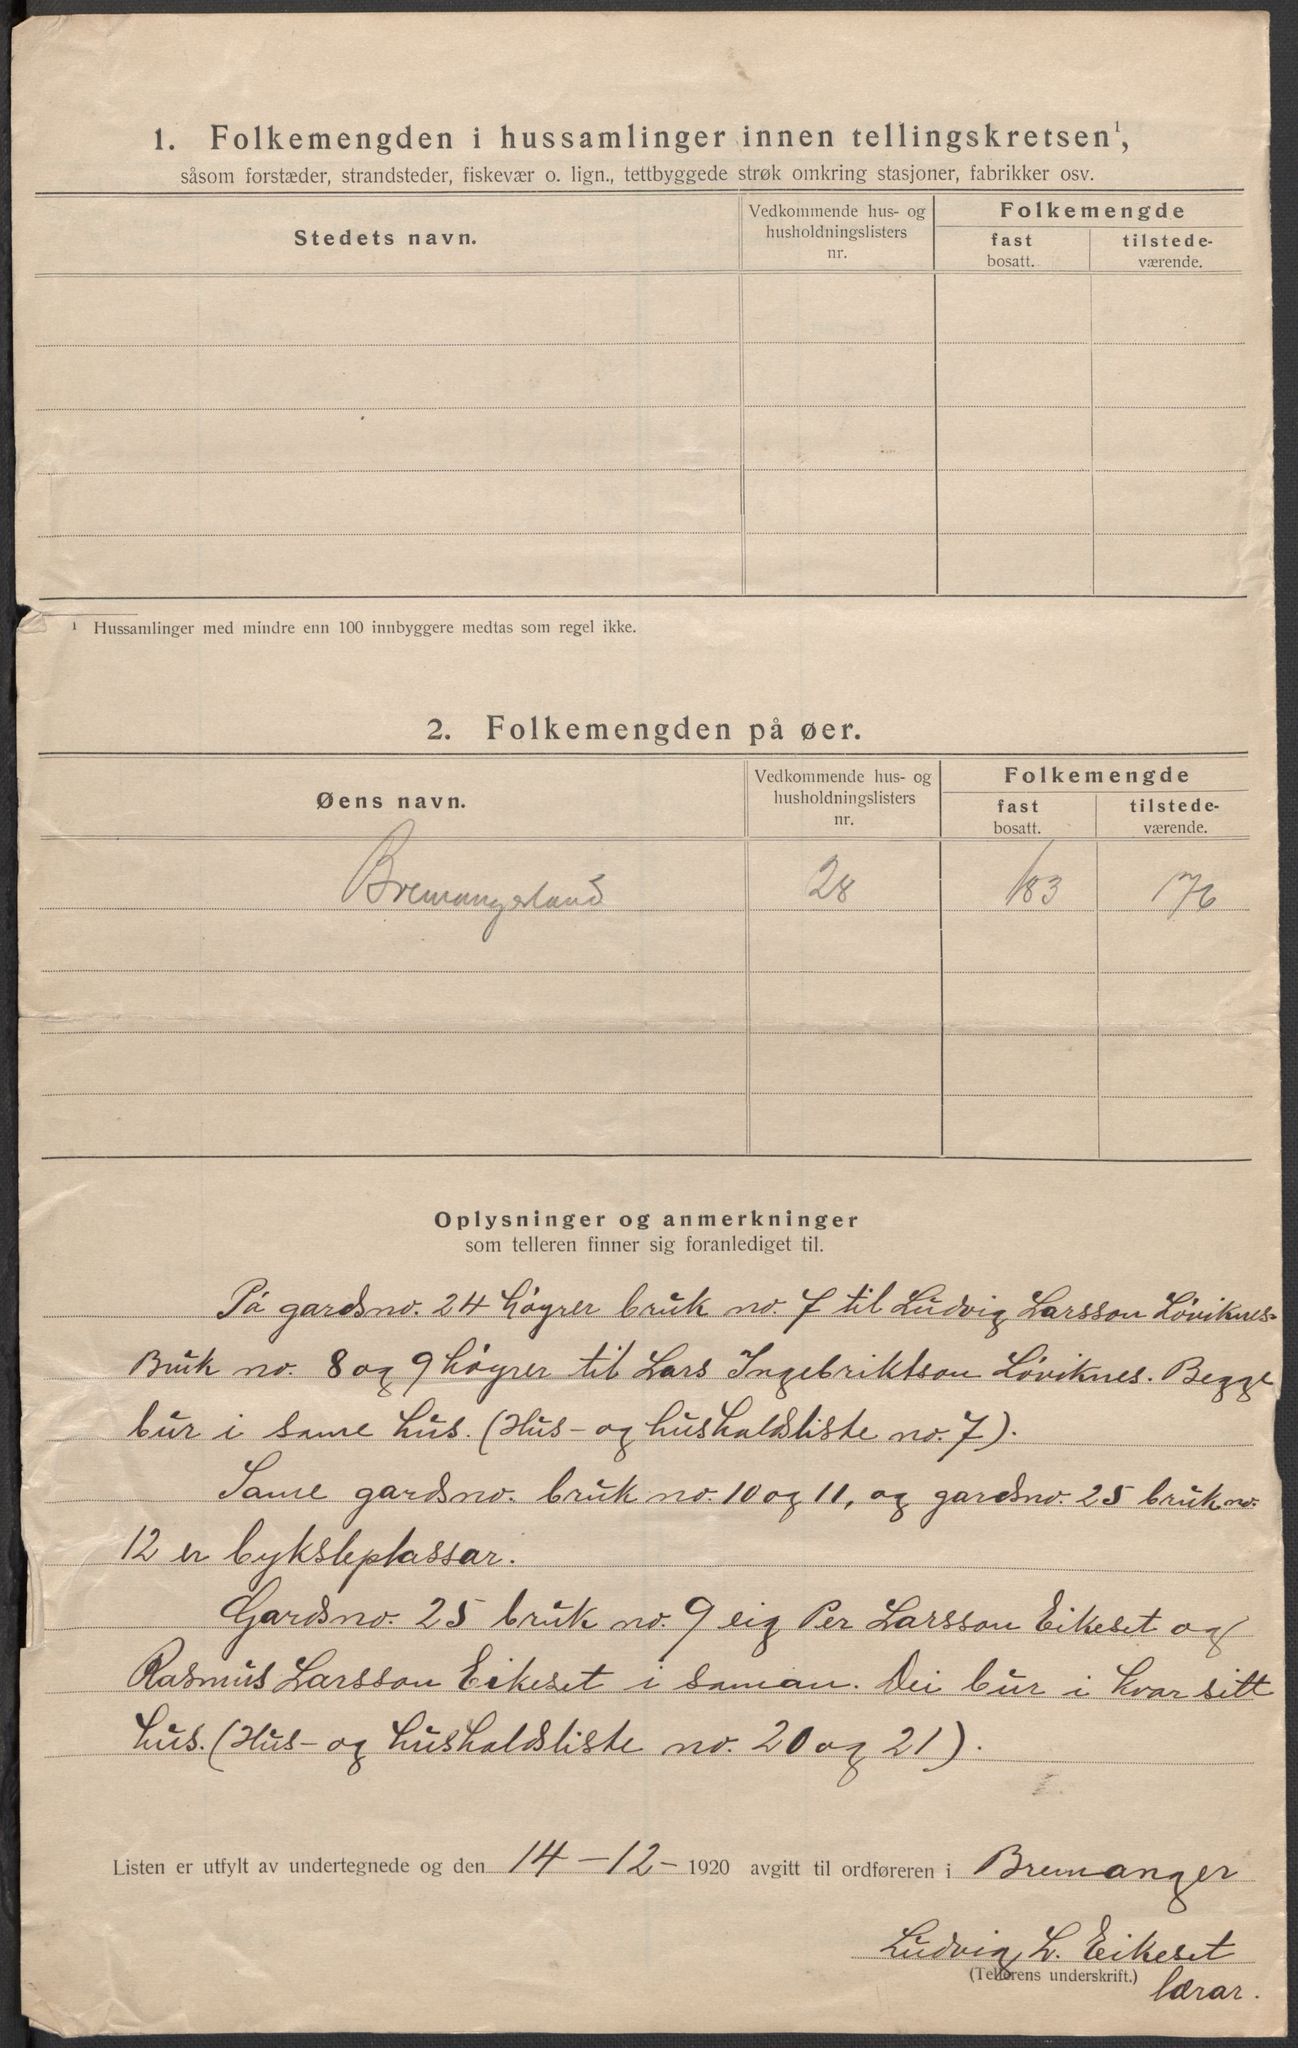 1. Folkemengden i hussamlinger innen tellingskretsen¹,
såsom forstæder, strandsteder, fiskevær o. lign., tettbyggede strøk omkring stasjoner, fabrikker osv.
Stedets navn.
Vedkommende hus- og
husholdningslisters
nr.
Folkemengde
fast
bosatt.
tilstede-
værende.
¹ Hussamlinger med mindre enn 100 innbyggere medtas som regel ikke.
2. Folkemengden på øer.
Øens navn.
Vedkommende hus- og
husholdningslisters
nr.
Folkemengde
fast
bosatt.
tilstede-
værende.
Bremangerland 28 183 176
Oplysninger og anmerkninger
som telleren finner sig foranlediget til.
På gardsno. 24 høyrer bruk no. 7 til Ludvig Larsson Løviknes.
Bruk no. 8 og 9 høyrer til Lars Ingebriktson Løviknes. Begge
bur i same hus. (Hus- og hushaldsliste no. 7).
Same gardsno. bruk no. 10 og 11, og gardsno. 25 bruk no.
12 er byksleplassar.
Gardsno. 25 bruk no. 9 eig Per Larsson Eikeset og
Rasmus Larsson Eikeset i saman. Dei bur i kvar sitt
hus. (Hus- og hushaldsliste no. 20 og 21).
Listen er utfylt av undertegnede og den 14-12- 1920 avgitt til ordføreren i Bremanger
Ludvig L. Eikeset
(Tellerens underskrift.)
lærar.